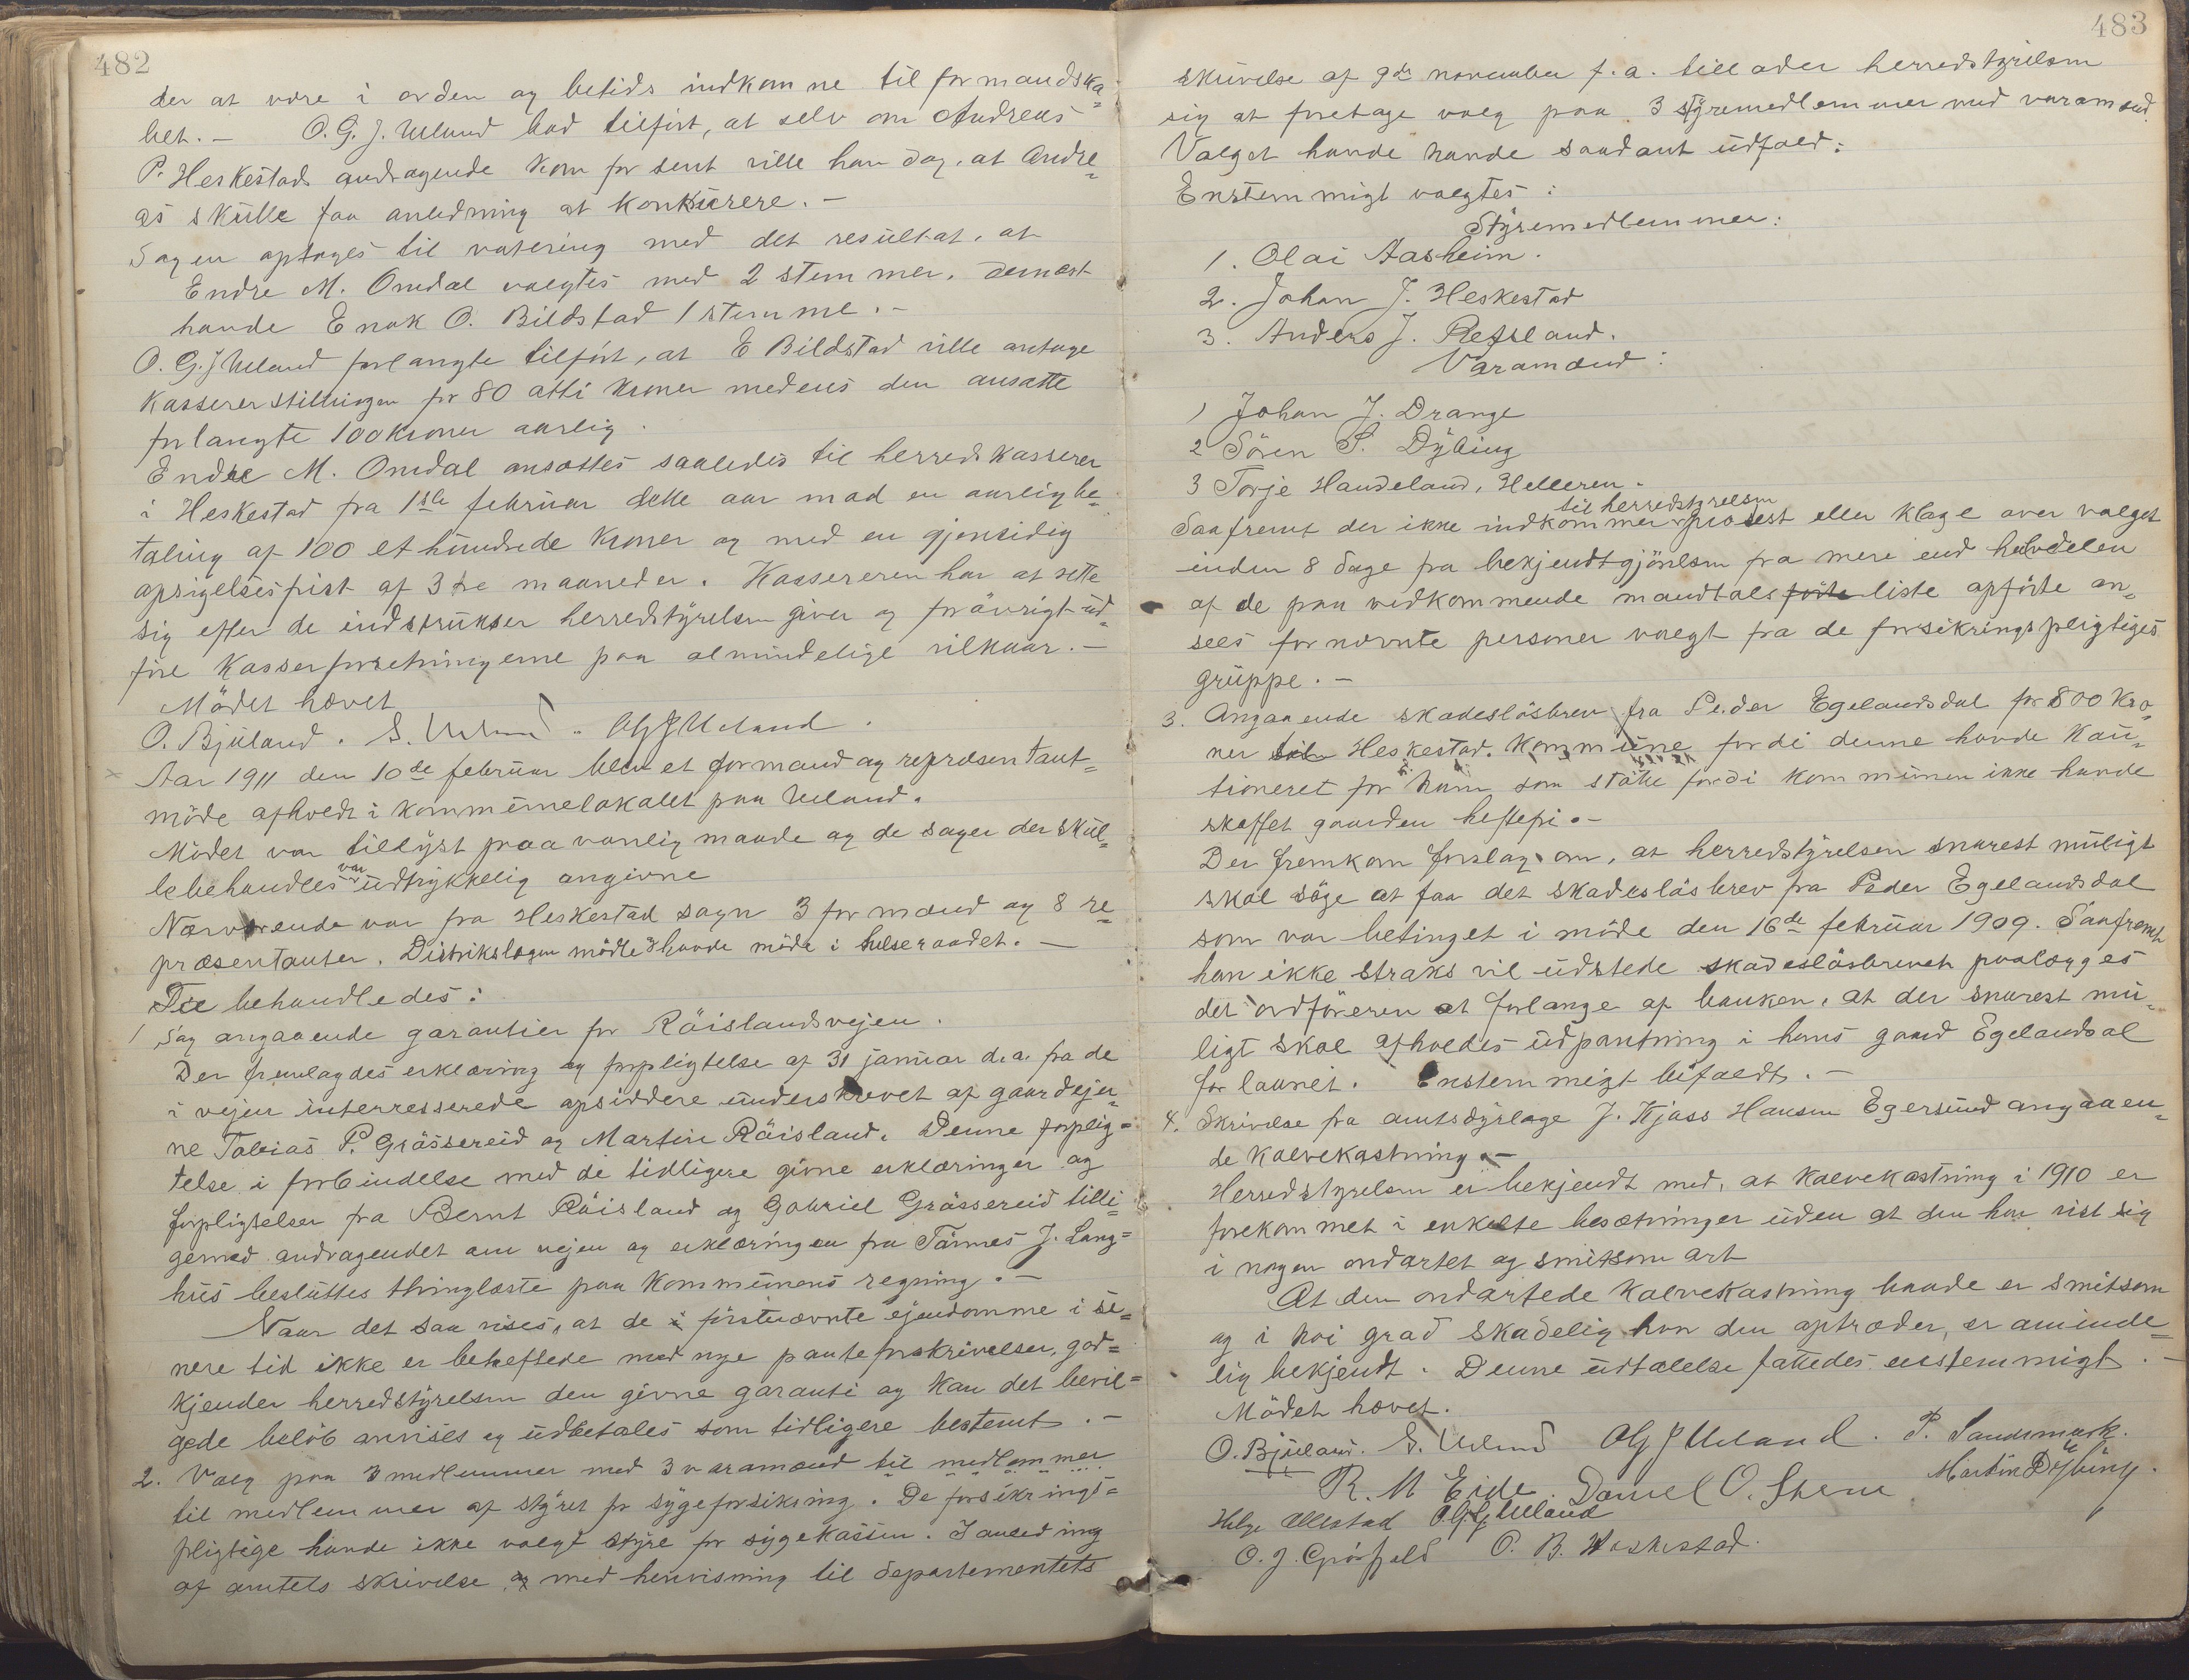 482
der at være i orden og betids indkomne til formandska=
bet. — O. G. J. Ueland bad tilført, at selv om Andreas
P. Heskestads andragende kom for sent ville han dog, at Andre=
as skulle faa anledning at konkurere. —
Sagen optoges til votering med det resultat, at
Endre M. Omdal valgtes med 2 stemmer. Dernæst
havde Enok O. Bildstad 1 stemme. —
O. G. J Ueland forlangte tilført, at E Bildstad ville antage
Kassererstillingen for 80 atti kroner medens den ansatte
forlangte 100 kroner aarlig.
Endre M. Omdal ansattes saaledes til herredskasserer
i Heskestad fra 1ste februar dette aar mod en aarlig be=
taling af 100 et hundrede kroner og med en gjensidig
opsigelsesfrist af 3 tre maaneder. Kassereren har at rette
sig efter de indstrukser herredstyrelsen giver og forøvrigt ud=
føre Kasserforretningerne paa almindelige vilkaar. —
Mødet hævet
O. Bjuland. S. Ueland. OGJ Ueland.
Aar 1911 den 10de februar blev et formand og repræsentant=
møde afholdt i kommunelokalet paa Ueland.
Mødet var tillyst paa vanlig maade og de sager der skul=
le behandles var udtrykkelig angivne
Nærværende var fra Heskestad sogn 3 formænd og 8 re=
præsentanter. Distriktslægen mødte & havde møde i helseraadet. —
Til behandledes:
1 Sag angaaende garantier for Røislandsvejen.
Der fremlagdes erklæring og forpligtelse af 31 januar d.a. fra de
i vejen interresserede opsiddere underskrevet af gaardejer=
ne Tobias P. Grøssereid og Martin Røisland. Denne forplig=
telse i forbindelse med de tidligere givne erklæringer og
forpligtelser fra Bernt Røisland og Gabriel Grøssereid tilli=
gemed andragendet om vejen og erklæringen fra Tønnes J. Lang=
hus besluttes thinglæste paa Kommunens regning. —
Naar det saa vises, at de i førstnævnte ejendomme i se=
nere tid ikke er beheftede med nye panteforskrivelser, god=
kjender herredstyrelsen den givne garanti og kan det bevil=
gede beløb anvises og udbetales som tidligere bestemt. —
2. Valg paa 3 medlemmer med 3 varamænd til medlemmer
til medlemmer af styret for sygeforsikring. De forsikrings=
pligtige havde ikke valgt styre for sygekassen. I anledning
af amtets skrivelse og med henvisning til departementets
483
skrivelse af 9de november f.a. tillader herredstyrelsen
sig at foretage valg paa 3 styremedlemmer med varamænd.
Valget havde havde saadant udfald:
Enstemmigt valgtes:
Styremedlemmer:
1. Olai Aasheim.
2. Johan J. Heskestad
3. Anders J. Refsland.
Varamænd:
1 Johan J. Drange
2 Sören S. Dybing
3 Torje Haudeland, Helleren.
til herredstyrelsen
Saafremt der ikke indkommer protest eller klage over valget
inden 8 dage fra bekjendtgjörelsen fra mere end halvdelen
af de paa vedkommende mandtalsførte liste opførte an=
sees fornævnte personer valgt fra de forsikringspligtiges
gruppe. —
3. Angaaende skadesløsbrev fra Peder Egelandsdal for 800 kro=
ner til Heskestad Kommune fordi denne havde kau=
tioneret for ham som støtte fordi kommunen ikke havde
skaffet gaarden heftefri. —
Der fremkom forslag om, at herredstyrelsen snarest muligt
skal søge at faa det skadesløsbrev fra Peder Egelandsdal
som var betinget i møde den 16de februar 1909. Saafremt
han ikke straks vil udstede skadesløsbrevet paalægges
det ordføreren at forlange af banken, at der snarest mu=
ligt skal afholdes udpantning i hans gaard Egelandsal
for laanet. Enstemmigt bifaldt. —
4. Skrivelse fra amtsdyrlæge J. Kjøss Hansen Egersund angaaen=
de kalvekastning. —
Herredstyrelsen er bekjendt med, at kalvekastning i 1910 er
forekommet i enkelte besætninger uden at den har vist sig
i nogen ondartet og smitsom art
At den ondartede kalvekastning baade er smitsom
og i høi grad skadelig hvor den optræder, er aminde=
lig bekjendt. Denne udtalelse fattedes enstemmigt. —
Mødet hævet.
O. Bjuland. S. Ueland OGJ Ueland. P. Sandsmark.
R. M Eide. Daniel O. Skene Martin Dybing.
Helge Ollestad O.G.G Ueland
O. J. Grøsfjeld O. B. Heskestad.